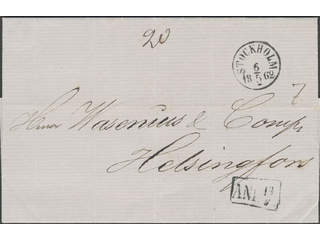 20
STOCKHOLM
6
5
18 62
Herrar Wasenius & Comp
Helsingfors
ANK